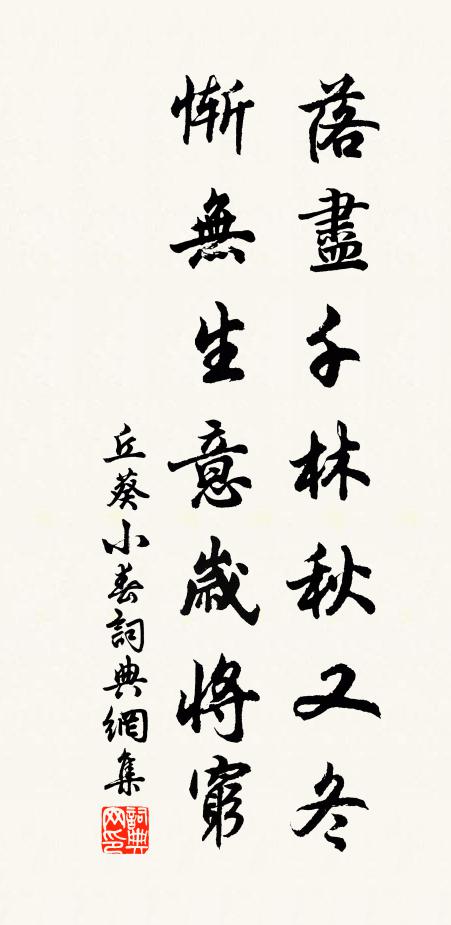 落盡千林秋又冬
慚無生意歲將窮
丘葵小春詞典網集
詞典网印